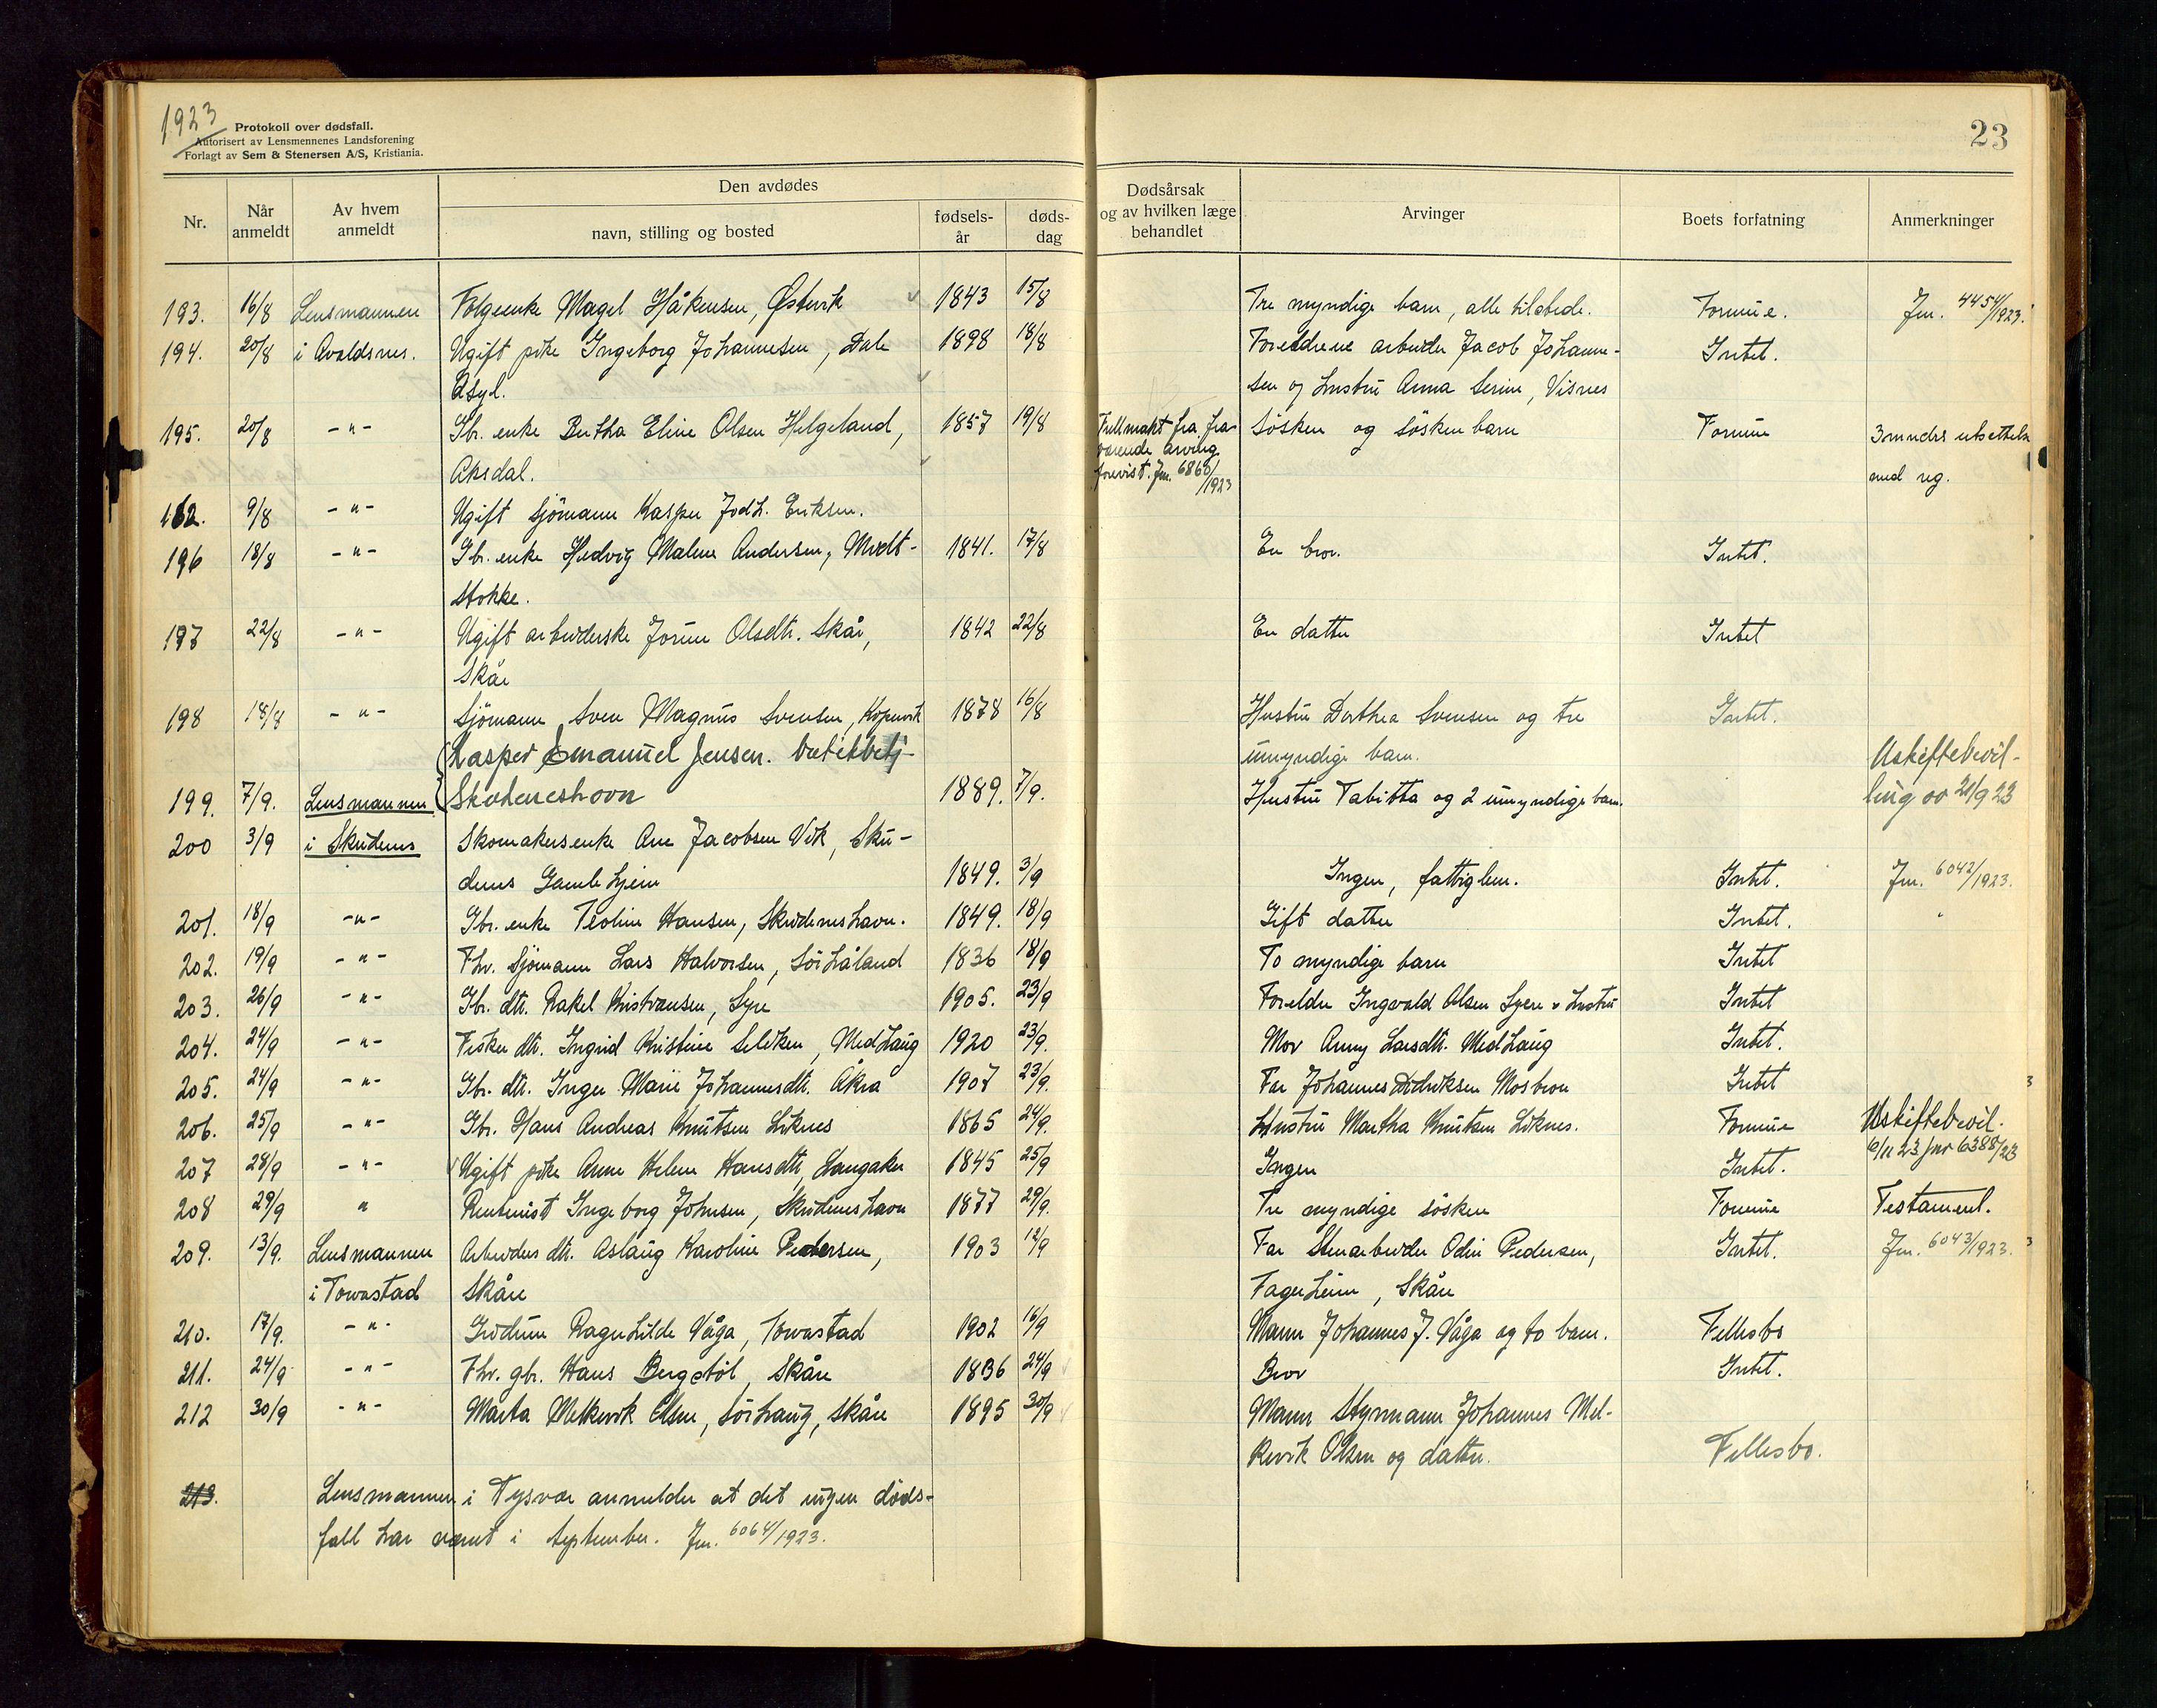 1923
Protokoll over dødsfall.
Autorisert av Lensmennenes Landsforening
Forlagt av Sem & Stenersen A/S, Kristiania.
23
Nr. Når anmeldt Av hvem anmeldt Den avdødes navn, stilling og bosted fødsels-år døds-dag Dødsårsak og av hvilken læge behandlet Arvinger Boets forfatning Anmerkninger
193. 16/8 Lensmannen Folgeenke Magel Håkensen, Østevik 1843 15/8 Tre myndige barn, alle tilstede. Formue. Jnr. 4454/1923.
194. 20/8 i Avaldsnes. Ugift pike Ingeborg Johannesen, Dale 1898 18/8 Foreldrene arbeider Jacob Johanne- Intet.
Asyl. sen og hustru Anna Serine, Visnes
195. 20/8 -"- Gbr. enke Bertha Eline Olsen Helgeland, 1857 19/8 Fullmakt fra fra- Søsken og søskenbarn Formue 3 mndrs utsettelse
Aksdal. værende arving med reg.
forevist. Jnr. 6860/1923
162. 9/8 -"- Ugift sjömann Kasper Eriksen.
196 18/8 -"- Gbr. enke Hedvig Malene Andersen, Midt- 1841. 17/8 En bror. Intet.
stokke.
197 22/8 -"- Ugift arbeiderske Jorine Olsdtr. Skår, 1842 22/8 En datter Intet
Skår
198 18/8 -"- Sjömann Sven Magnus Svensen, Kopervik 1878 16/8 Hustru Dorthea Svensen og tre Intet.
umyndige barn.
Kasper Emanuel Jensen. butikkbetj Uskiftebevil-
199. 7/9. Lensmannen Skudeneshavn 1889. 7/9. Hustru Tabitta og 2 umyndige barn. ling av 21/9 23
200 3/9 i Skudenes Skomakersenke Ane Jacobsen Vik, Sku-
denes Gamlehjem 1849. 3/9 Ingen, fattiglem. Intet. Jnr. 6042/1923.
201. 18/9 -"- Gbr. enke Teoline Hansen, Skudeneshavn. 1849. 18/9 Gift datter Intet. "
202. 19/9 -"- Fhv. sjömann Lars Halvorsen, Sörhåland 1836 18/9 To myndige barn Intet
203. 26/9 -"- Gbr. dtr. Rakel Kristiansen, Syre 1905. 23/9 Foreldre Ingvald Olsen Syre o hustru Intet
204. 24/9 -"- Fisker dtr. Ingrid Kristine Selvken, Medhaug 1920 23/9. Mor Anny Larsdtr. Medhaug Intet.
205. 24/9 -"- Gbr. dtr. Inger Marie Johannesdtr. Åkra 1907 23/9. Far Johannes Didriksen Mosbron Intet
206. 25/9 -"- Gbr. Hans Andreas Knutsen Liknes 1865 24/9. Hustru Martha Knutsen Liknes. Formue Uskiftebevil.
6/11 23 jnr 6388/23
207 28/9 -"- Ugift pike Anne Helene Hansdtr, Langaker 1845 25/9 Ingen Intet.
208 29/9 " Rentenist Ingeborg Johnsen, Skudeneshavn 1877 29/9. Tre myndige søsken Formue Testament.
209. 13/9. Lensmannen Arbeiders dtr. Aslaug Karoline Pedersen, 1903 12/9 Far Stenarbeider Odin Pedersen, Intet. Jnr. 6043/1923.
i Torvastad Skåre Fagerheim, Skåre
210. 17/9. -"- Gudrun Ragnhilde Våga, Torvastad 1902 16/9 Mann Johannes J. Våga og to barn. Fellesbo
211. 24/9 -"- Fhv. gbr. Hans Bergstöl, Skåre 1836 24/9 Bror Intet.
212 30/9 -"- Marta Melkevik Olsen, Sörhaug, Skåre 1895 30/9 Mann Styrmann Johannes Mel-
kevik Olsen og datter. Fellesbo.
213. Lensmannen i Tysvær anmelder at det ingen døds-
fall har været i september. Jnr. 6064/1923.